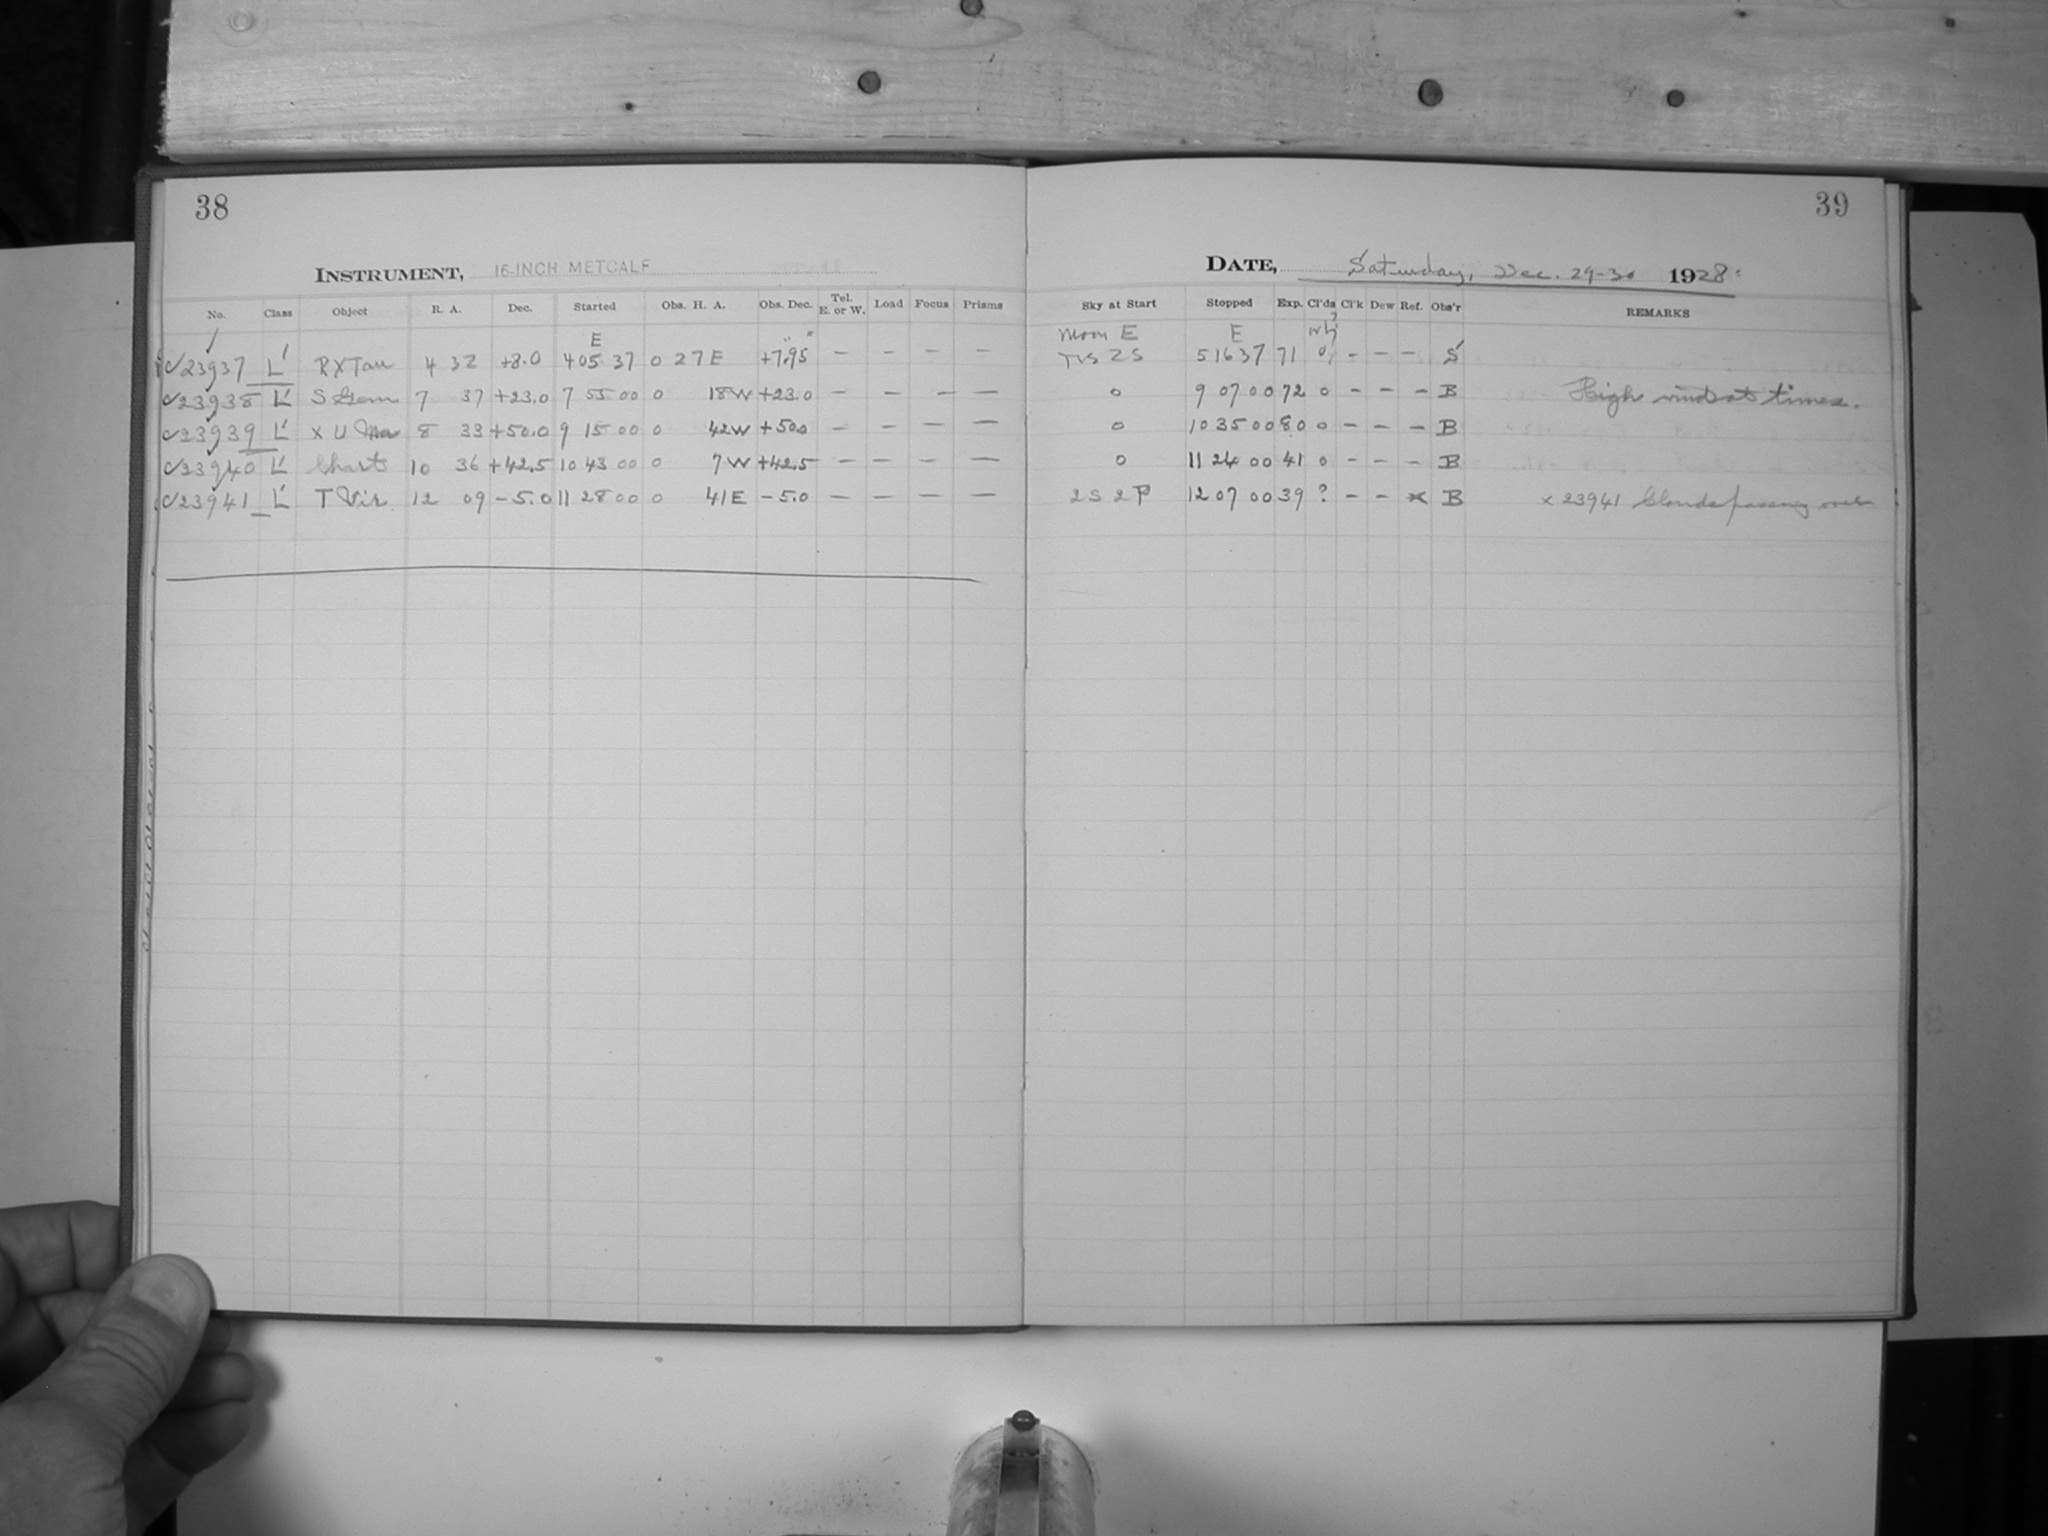 38
INSTRUMENT, 16-INCH METCALF
No. Class Object R. A. Dec. Started Obs. H. A. Obs. Dec. Tel. E. or W. Load Focus Prisms
E
23937 L RX Tau 4 32 +8.0 4 05 37 0 27 E +7.95 — — — —
23938 L S Gem 7 37 +23.0 7 55 00 0 18 W +23.0 — — — —
23939 L X U Ma 8 33 +50.0 9 15 00 0 42 W +50.0 — — — —
23940 L Chart 10 36 +42.5 10 43 00 0 7 W +42.5 — — — —
23941 L T Vir. 12 09 -5.0 11 28 00 0 41 E -5.0 — — — —
39
DATE, Saturday, Dec. 29-30 1928.
Sky at Start Stopped Exp. Cl'ds Cl'k Dew Ref. Obs'r REMARKS
Moon E E
2 S 5 16 37 71 0 - - - S
0 9 07 00 72 0 - - - B High winds at times.
0 10 35 00 80 0 - - - B
0 11 24 00 41 0 - - - B
2 S 2 P 12 07 00 39 ? - - x B x 23941 Clouds passing over